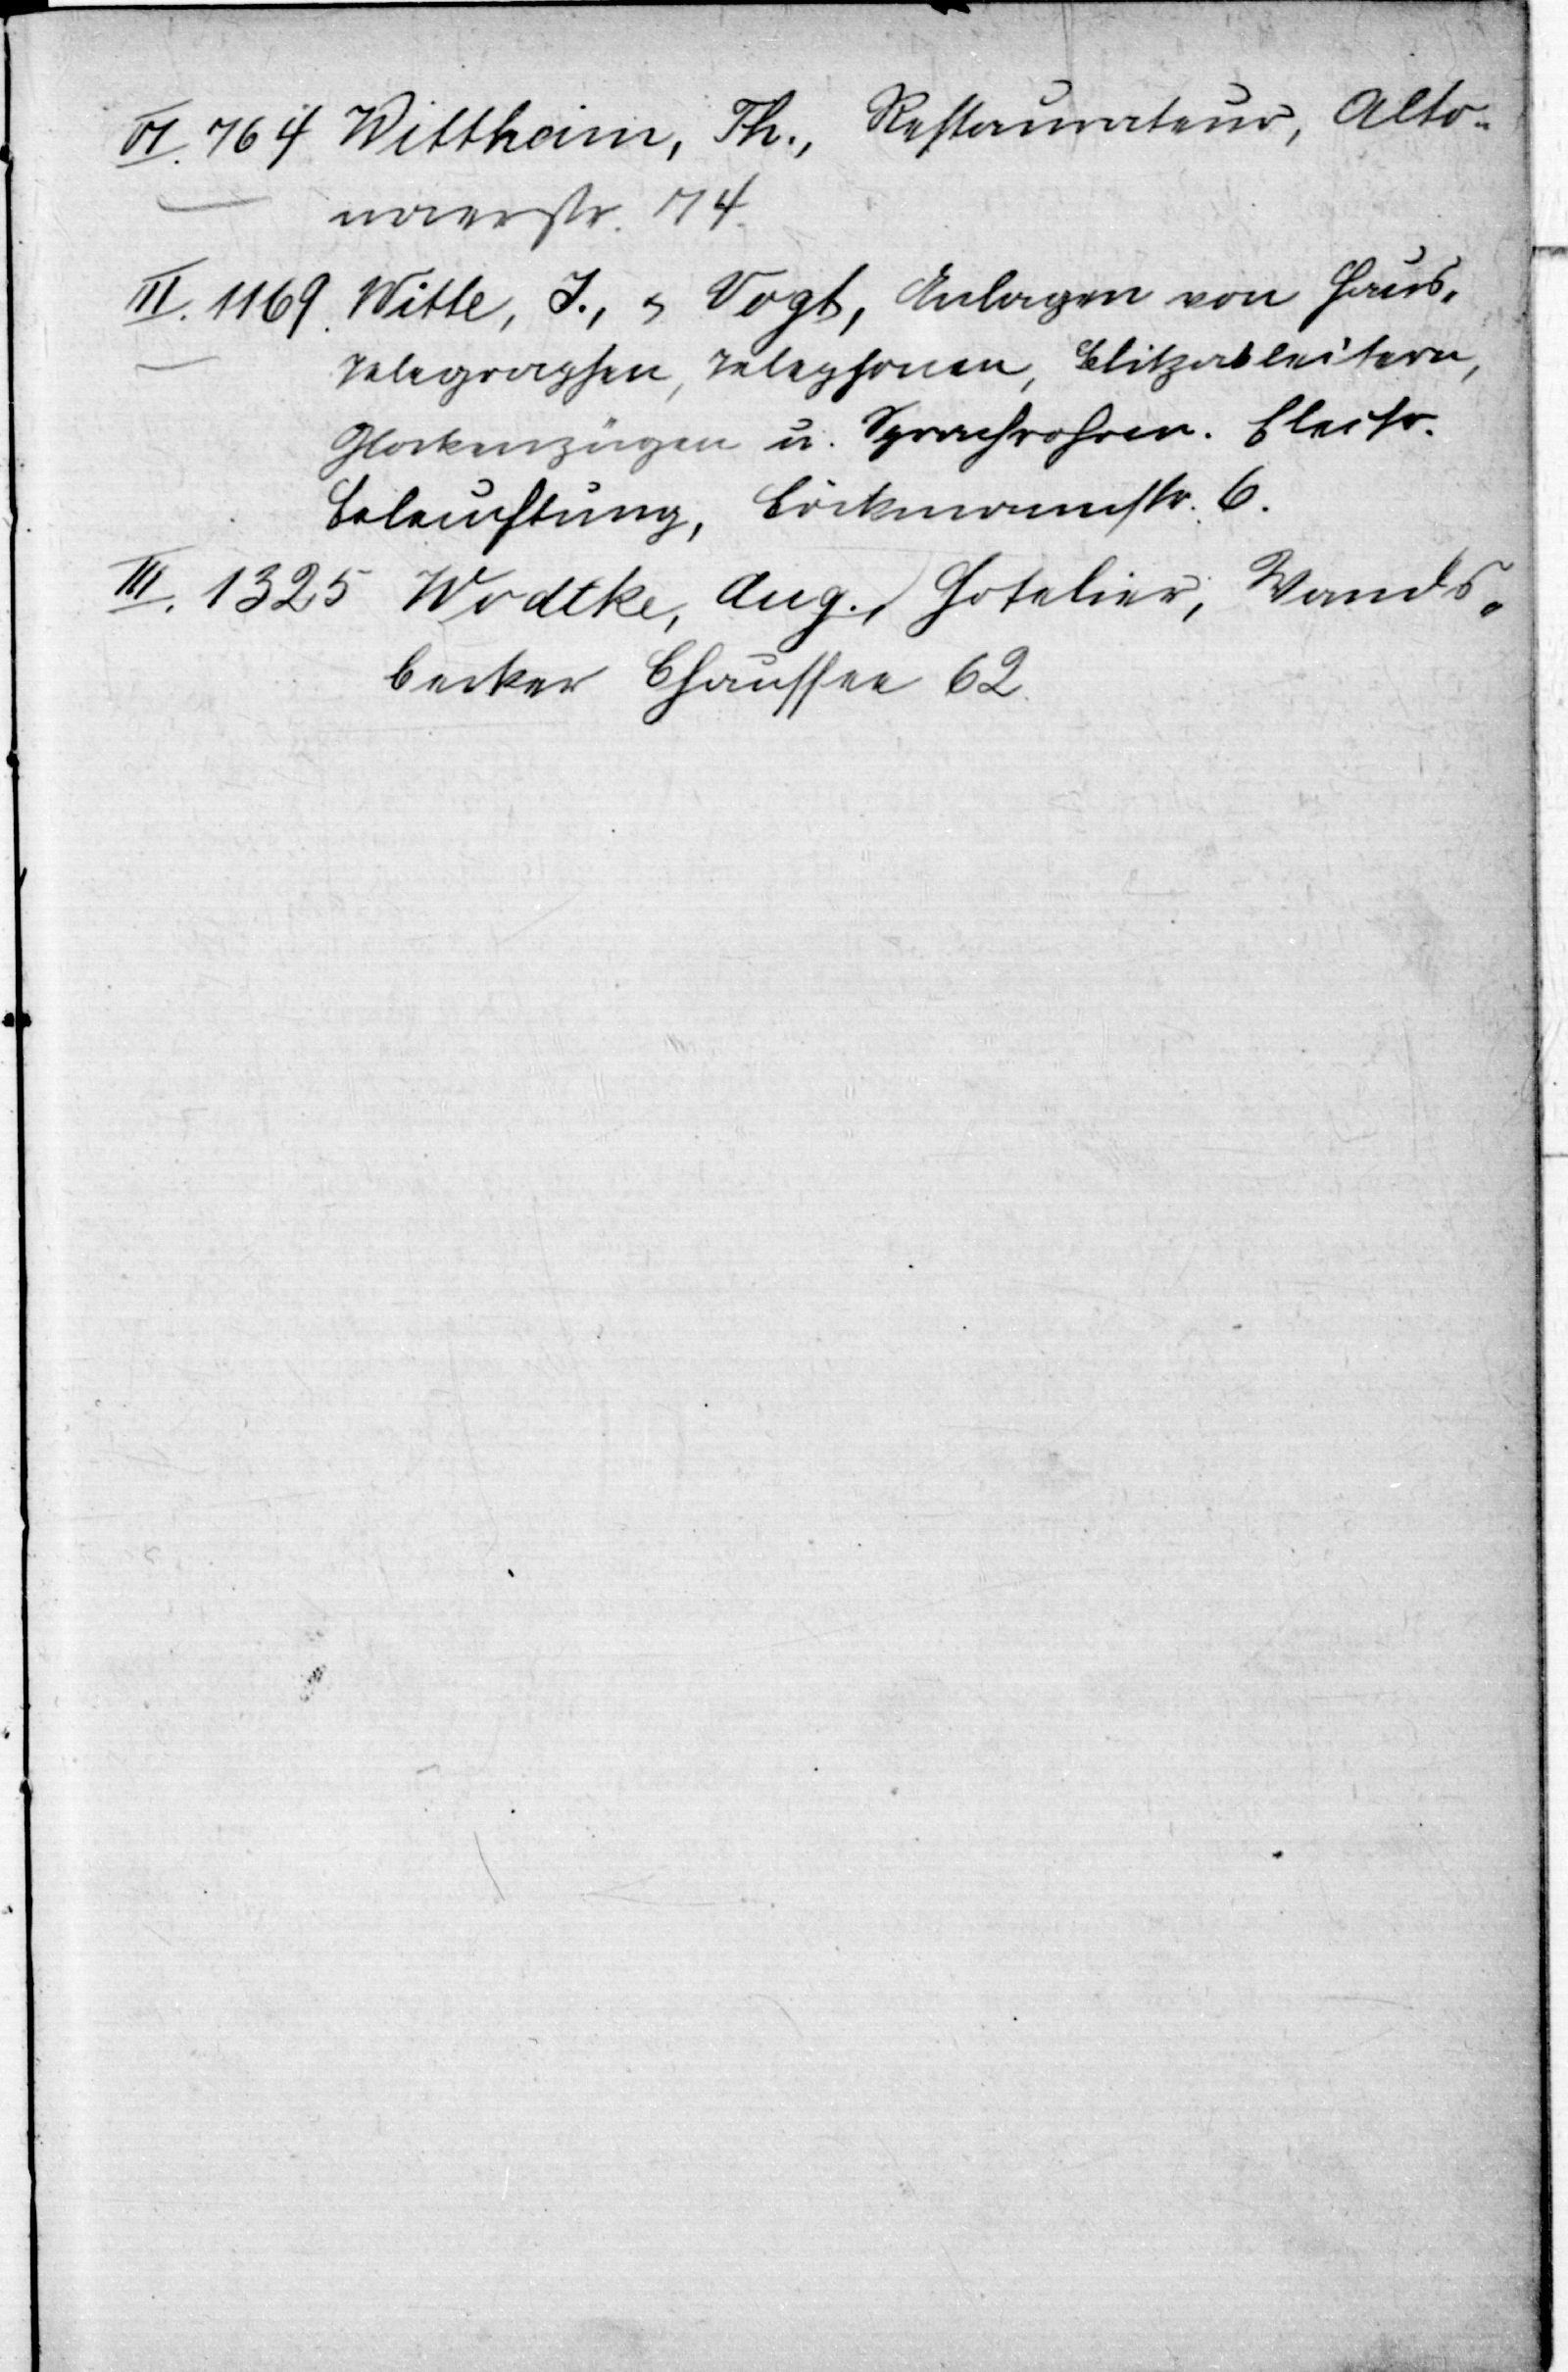 VI. 764 Wittheim, Th., Restaurateur, Alto-
naerstr. 74.
III. 1169. Witte, J., & Vogt, Anlagen von Haus-
telegraphen, Telephonen, Blitzableitern,
Glockenzügen u. Sprachrohren. Electr.
Beleuchtung, Böckmannstr. 6.
III. 1325 Wodtke, Aug., Hotelier, Wands-
becker Chaussee 62.